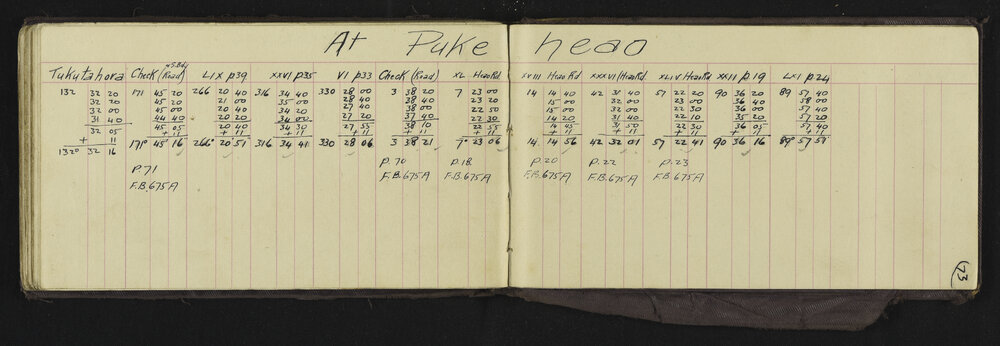 At Puke heao
Tukutahora Check (Road) & S. Bdy LIX p39 XXVI p35 VI p33 Check (Road) XL Heao Rd XVIII Heao Rd XXXVI (Heao Rd XLIV Heao Rd XXII p19 LXI p24
132 32 20 171 45 20 266 20 40 316 34 40 330 28 00 3 38 20 7 23 00 14 14 40 42 31 40 57 22 20 90 36 20 89 57 40
32 20 45 20 21 00 35 00 28 40 38 40 23 20 15 00 32 00 23 00 36 40 58 00
32 00 45 00 20 40 34 20 27 40 38 00 22 50 15 00 32 00 22 30 36 00 57 40
31 40 44 40 20 20 34 00 27 20 37 40 22 30 14 20 31 40 22 10 35 20 57 20
32 05 45 05 20 40 34 30 27 55 38 10 22 55 14 45 31 50 22 30 36 05 57 40
+ 11 + 11 + 11 + 11 + 11 + 11 + 11 + 11 + 11 + 11 + 11 + 11
132° 32 16 171° 45 16 266° 20 51 316 34 41 330 28 06 3 38 21 7° 23 06 14. 14 56 42 32 01 57 22 41 90 36 16 89° 57 51
p.71 p.70 p.18 p.20 p.22 p.23
F.B.675A F.B.675A F.B.675A F.B.675A F.B.675A F.B.675A
73